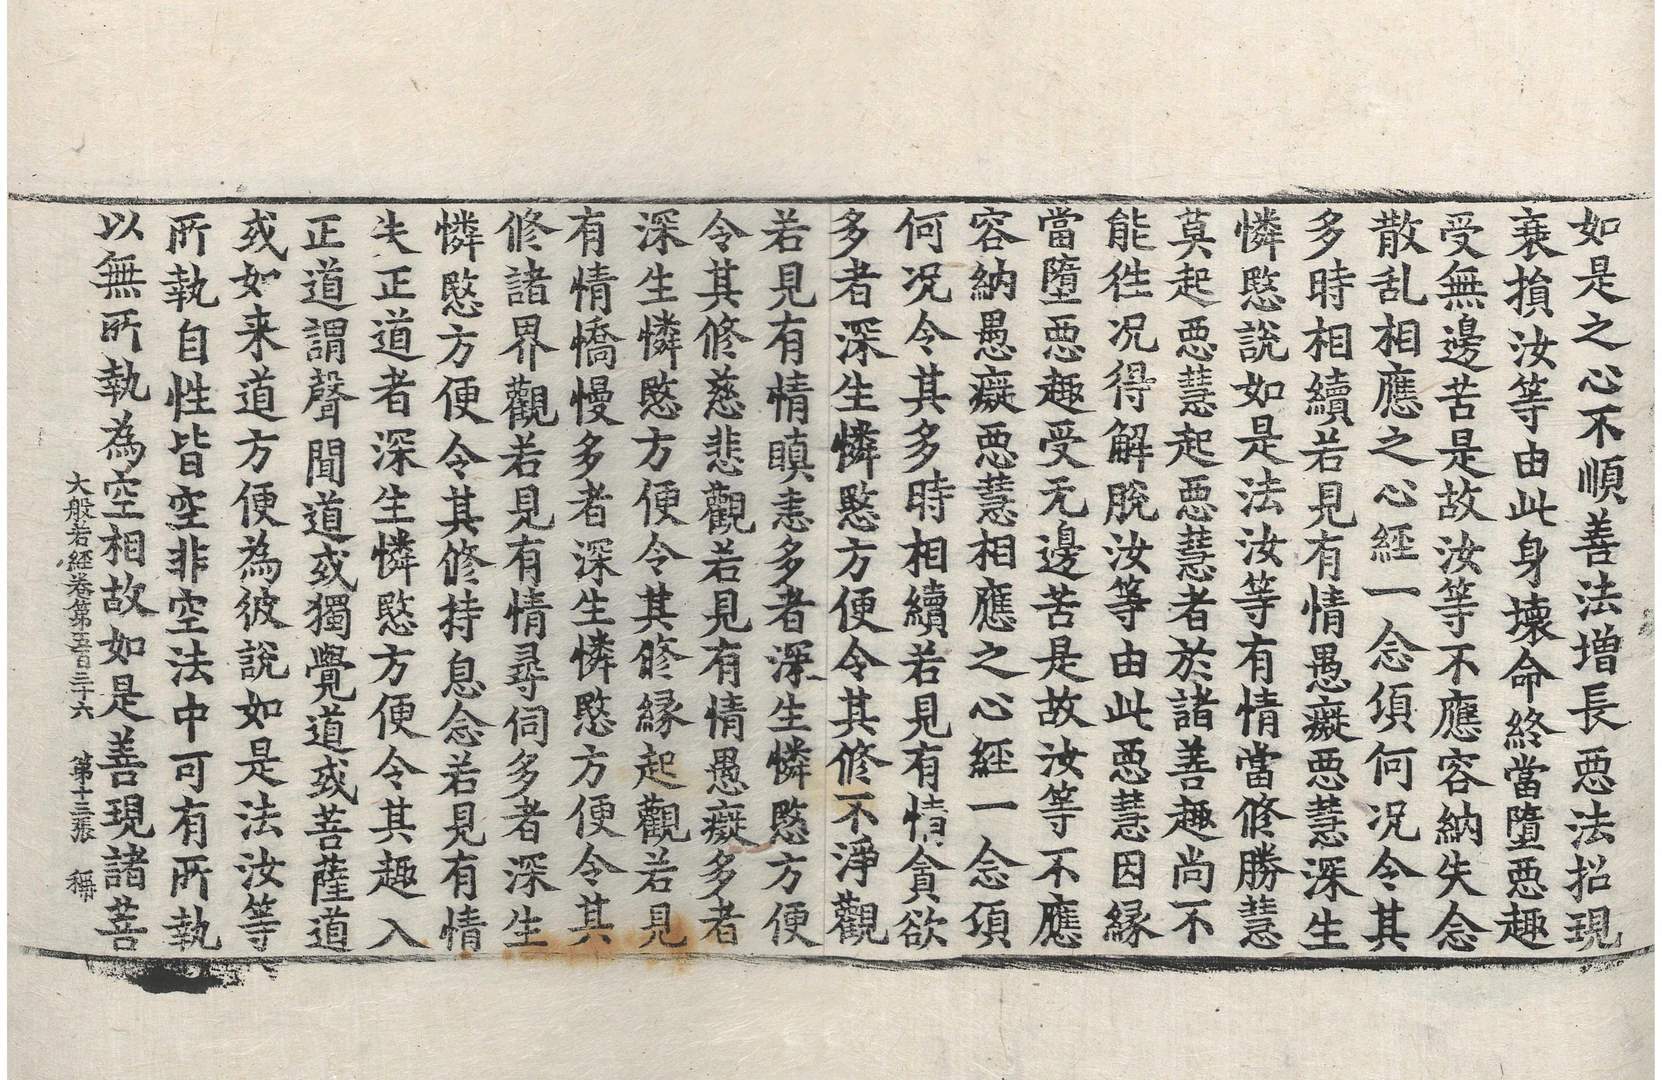 如是之心不順善法增長惡法招現
衰損汝等由此身壞命終當墮惡趣
受無邊苦是故汝等不應容納失念
散乱相應之心經一念頃何况令其
多時相續若見有情愚癡惡慧深生
憐愍說如是法汝等有情當修勝慧
莫起惡慧起惡慧者於諸善趣尚不
能往况得解脫汝等由此惡慧因縁
當墮惡趣受无邊苦是故汝等不應
容納愚癡惡慧相應之心經一念頃
何况令其多時相續若見有情貪欲
多者深生憐愍方便令其修不淨觀
若見有情瞋恚多者深生憐愍方便
令其修慈悲觀若見有情愚癡多者
深生憐愍方便令其修縁起觀若見
有情憍慢多者深生憐愍方便令其
修諸界觀若見有情尋伺多者深生
憐愍方便令其修持息念若見有情
失正道者深生憐愍方便令其趣入
正道謂聲聞道或獨覺道或菩薩道
或如来道方便為彼說如是法汝等
所執自性皆空非空法中可有所執
以無所執為空相故如是善現諸菩
大般若經卷第五百三十六 第十三張 稱